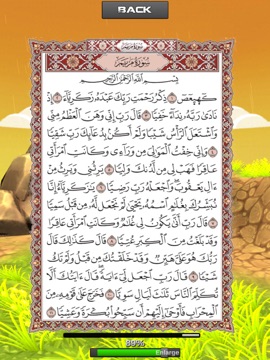 BACK
سُورَةُ مَرْيَمَ
سُورَةُ مَرْيَمَ
بِسْمِ اللَّهِ الرَّحْمَٰنِ الرَّحِيمِ
كهيعص ۝ ذِكْرُ رَحْمَتِ رَبِّكَ عَبْدَهُ زَكَرِيَّا ۝ إِذْ
نَادَىٰ رَبَّهُ نِدَاءً خَفِيًّا ۝ قَالَ رَبِّ إِنِّي وَهَنَ الْعَظْمُ مِنِّي
وَاشْتَعَلَ الرَّأْسُ شَيْبًا وَلَمْ أَكُنْ بِدُعَائِكَ رَبِّ شَقِيًّا
۝ وَإِنِّي خِفْتُ الْمَوَالِيَ مِنْ وَرَاءِي وَكَانَتِ امْرَأَتِي
عَاقِرًا فَهَبْ لِي مِنْ لَدُنْكَ وَلِيًّا ۝ يَرِثُنِي وَيَرِثُ مِنْ
آلِ يَعْقُوبَ وَاجْعَلْهُ رَبِّ رَضِيًّا ۝ يَا زَكَرِيَّا إِنَّا
نُبَشِّرُكَ بِغُلَامٍ اسْمُهُ يَحْيَىٰ لَمْ نَجْعَلْ لَهُ مِنْ قَبْلُ سَمِيًّا
۝ قَالَ رَبِّ أَنَّىٰ يَكُونُ لِي غُلَامٌ وَكَانَتِ امْرَأَتِي عَاقِرًا
وَقَدْ بَلَغْتُ مِنَ الْكِبَرِ عِتِيًّا ۝ قَالَ كَذَٰلِكَ قَالَ
رَبُّكَ هُوَ عَلَيَّ هَيِّنٌ وَقَدْ خَلَقْتُكَ مِنْ قَبْلُ وَلَمْ تَكُ
شَيْئًا ۝ قَالَ رَبِّ اجْعَلْ لِي آيَةً قَالَ آيَتُكَ أَلَّا
تُكَلِّمَ النَّاسَ ثَلَاثَ لَيَالٍ سَوِيًّا ۝ فَخَرَجَ عَلَىٰ قَوْمِهِ مِنَ
الْمِحْرَابِ فَأَوْحَىٰ إِلَيْهِمْ أَنْ سَبِّحُوا بُكْرَةً وَعَشِيًّا ۝
Enlarge